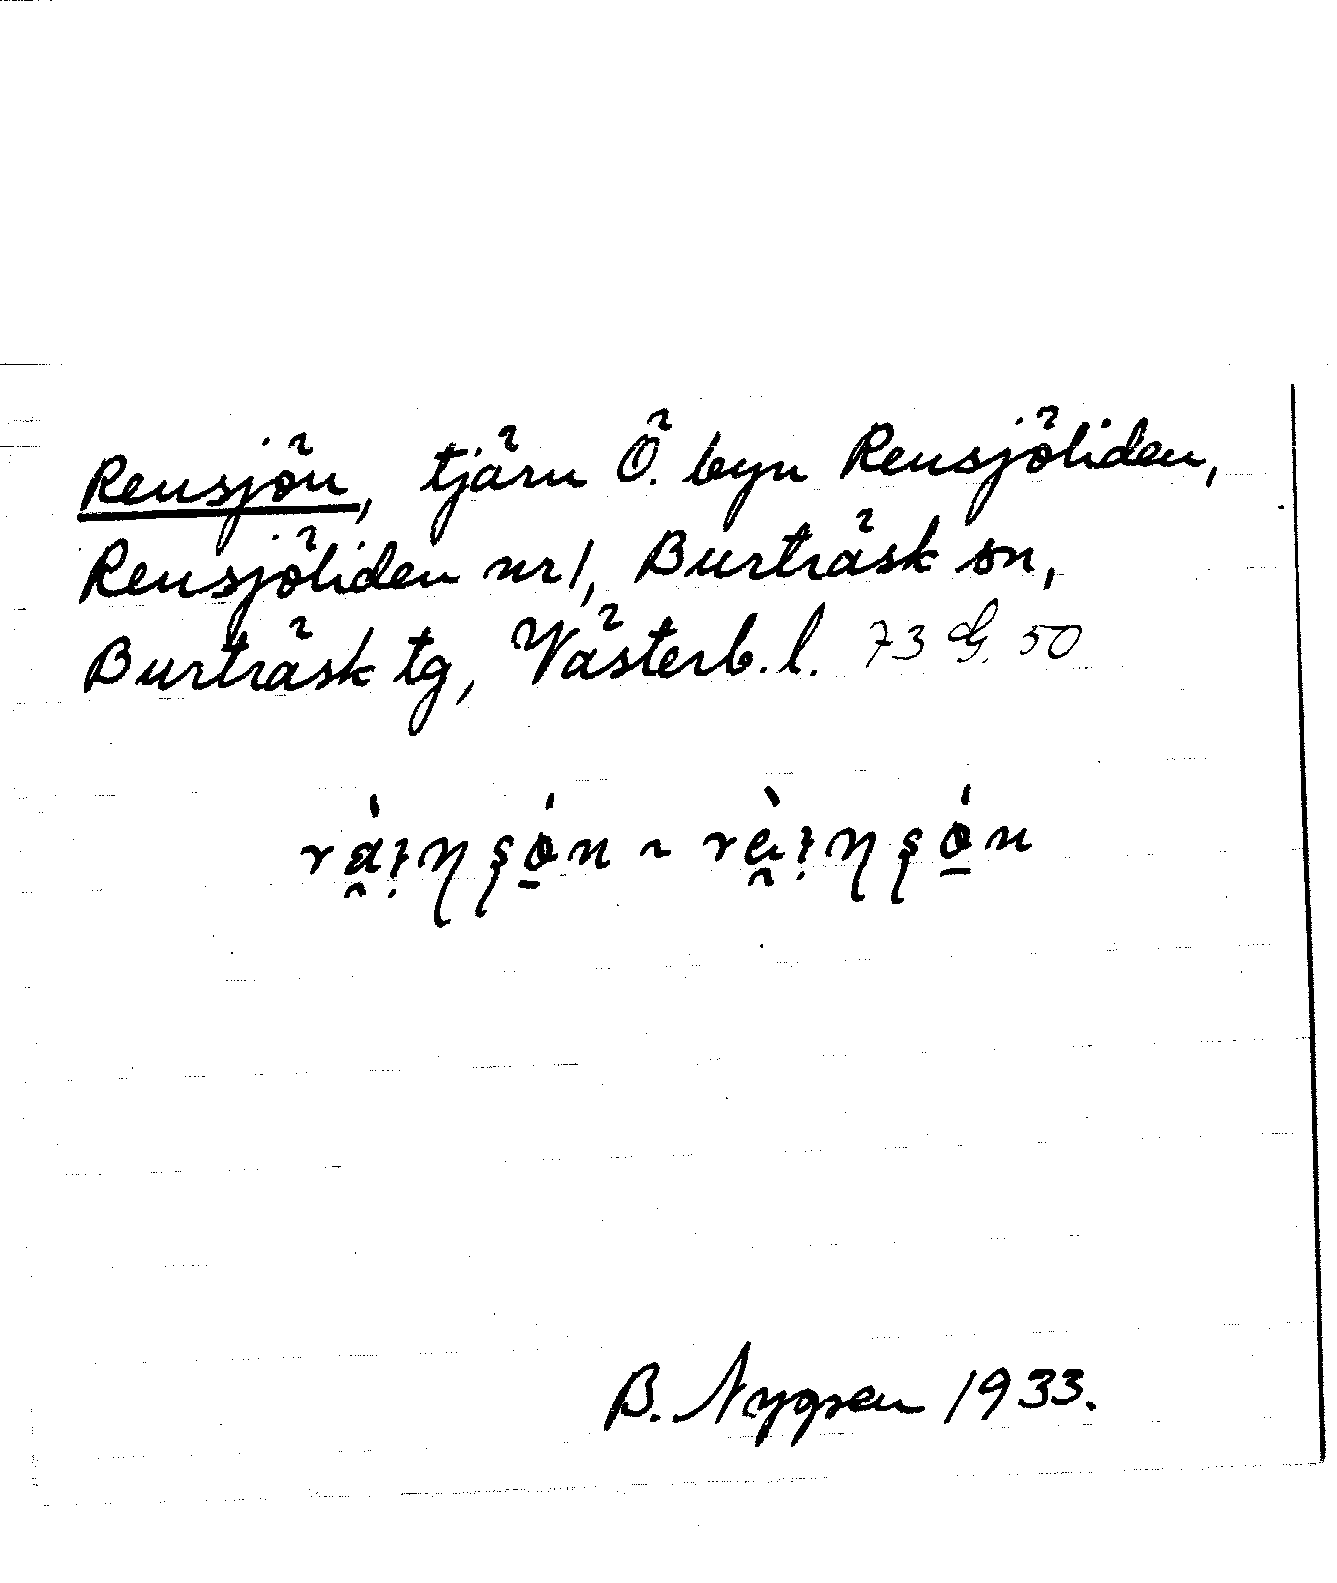 Rensjön, tjärn Ö. byn Rensjöliden,
Rensjöliden nr 1, Burträsk sn,
Burträsk tg, Västerb. l. 73 G. 50
B. 1933.